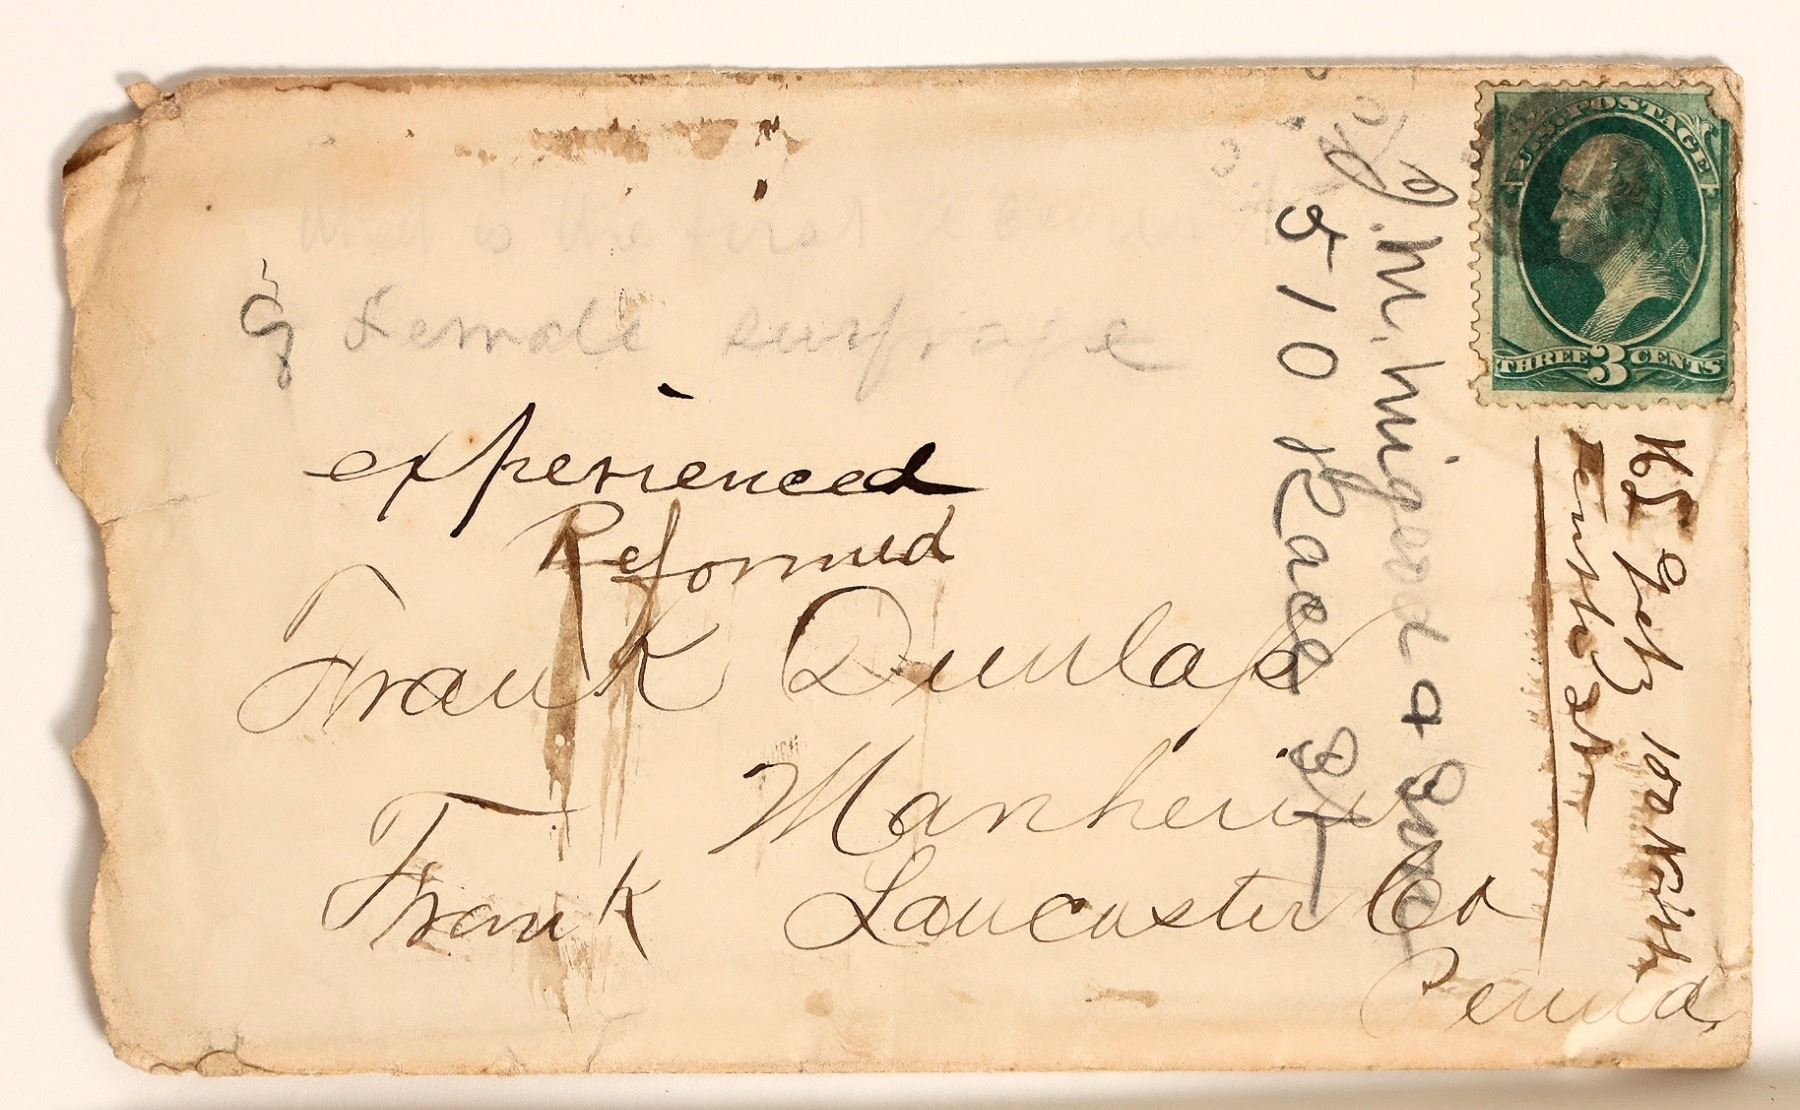 that is the first
of Female suffrage
experienced
Reformed
Frank Dunlap
Manheim
Frank Lancaster Co
Penna
J. M.
510 Race St
102 North
Tenth St
U.S. POSTAGE
THREE 3 CENTS